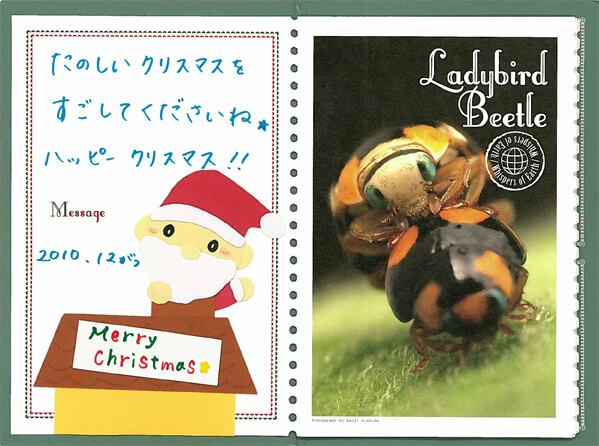 たのしいクリスマスを
すごしてくださいね★
ハッピー クリスマス!!
Message
2010.12がつ
Merry
Christmas
Ladybird
Beetle
Whispers of Earth
Whispers of Earth
Photograph by Kenji Nishida